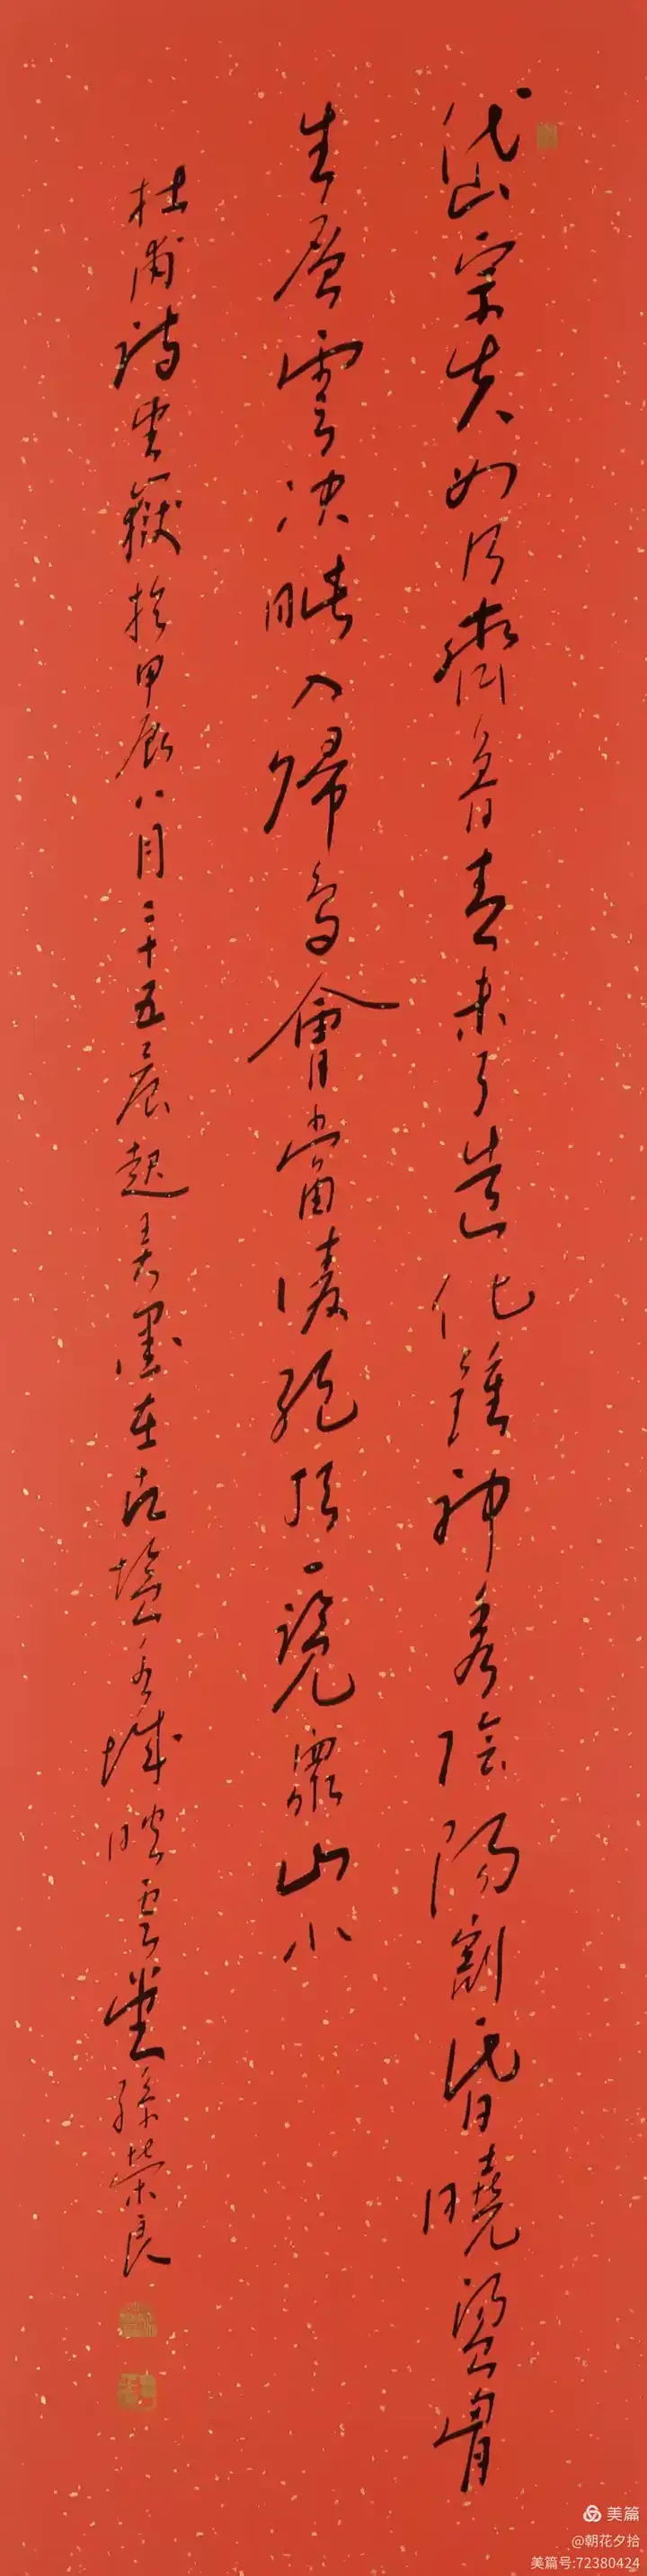 岱宗夫如何齊魯青未了造化鍾神秀陰陽割昏曉盪胷
生層雲决眦入歸鳥會當凌絕頂一覽衆山小
杜甫詩望嶽於甲辰八月二十五晨起弄墨在古塩城映雲堂孫榮良
美篇
@朝花夕拾
美篇号:72380424